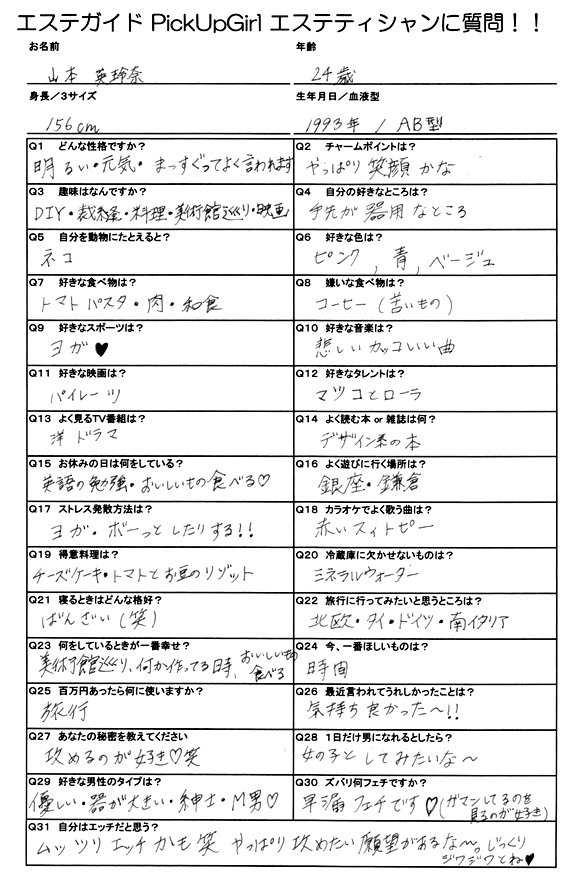 エステガイド PickUpGirl エステティシャンに質問！！
お名前 年齢
山本 英玲奈 24歳
身長／3サイズ 生年月日／血液型
156cm 1993年 / AB型
Q1 どんな性格ですか？ Q2 チャームポイントは？
明るい・元気・まっすぐってよく言われます やっぱり笑顔かな
Q3 趣味はなんですか？ Q4 自分の好きなところは？
DIY・裁縫・料理・美術館巡り・映画 手先が器用なところ
Q5 自分を動物にたとえると？ Q6 好きな色は？
ネコ ピンク, 青, ベージュ
Q7 好きな食べ物は？ Q8 嫌いな食べ物は？
トマトパスタ・肉・和食 コーヒー(苦いもの)
Q9 好きなスポーツは？ Q10 好きな音楽は？
ヨガ♥ 悲しいカッコいい曲
Q11 好きな映画は？ Q12 好きなタレントは？
パイレーツ マツコとローラ
Q13 よく見るTV番組は？ Q14 よく読む本 or 雑誌は何？
洋ドラマ デザイン系の本
Q15 お休みの日は何をしている？ Q16 よく遊びに行く場所は？
英語の勉強・おいしいもの食べる♡ 銀座・鎌倉
Q17 ストレス発散方法は？ Q18 カラオケでよく歌う曲は？
ヨガ・ボーっとしたりする!! 赤いスイトピー
Q19 得意料理は？ Q20 冷蔵庫に欠かせないものは？
チーズケーキ・トマトとお豆のリゾット ミネラルウォーター
Q21 寝るときはどんな格好？ Q22 旅行に行ってみたいと思うところは？
ばんざい(笑) 北欧・タイ・ドイツ・南イタリア
Q23 何をしているときが一番幸せ？ Q24 今、一番ほしいものは？
美術館巡り、何か作ってる時、おいしいもの食べる 時間
Q25 百万円あったら何に使いますか？ Q26 最近言われてうれしかったことは？
旅行 気持ち良かった〜!!
Q27 あなたの秘密を教えてください Q28 1日だけ男になれるとしたら？
攻めるのが好き♡笑 女の子としてみたいな〜
Q29 好きな男性のタイプは？ Q30 ズバリ何フェチですか？
優しい・器が大きい・紳士・M男♡ 早漏フェチです♡(ガマンしてるのを見るのが好き)
Q31 自分はエッチだと思う？
ムッツリエッチかも笑 やっぱり攻めたい願望があるな〜。じっくり
ジワジワとね♥